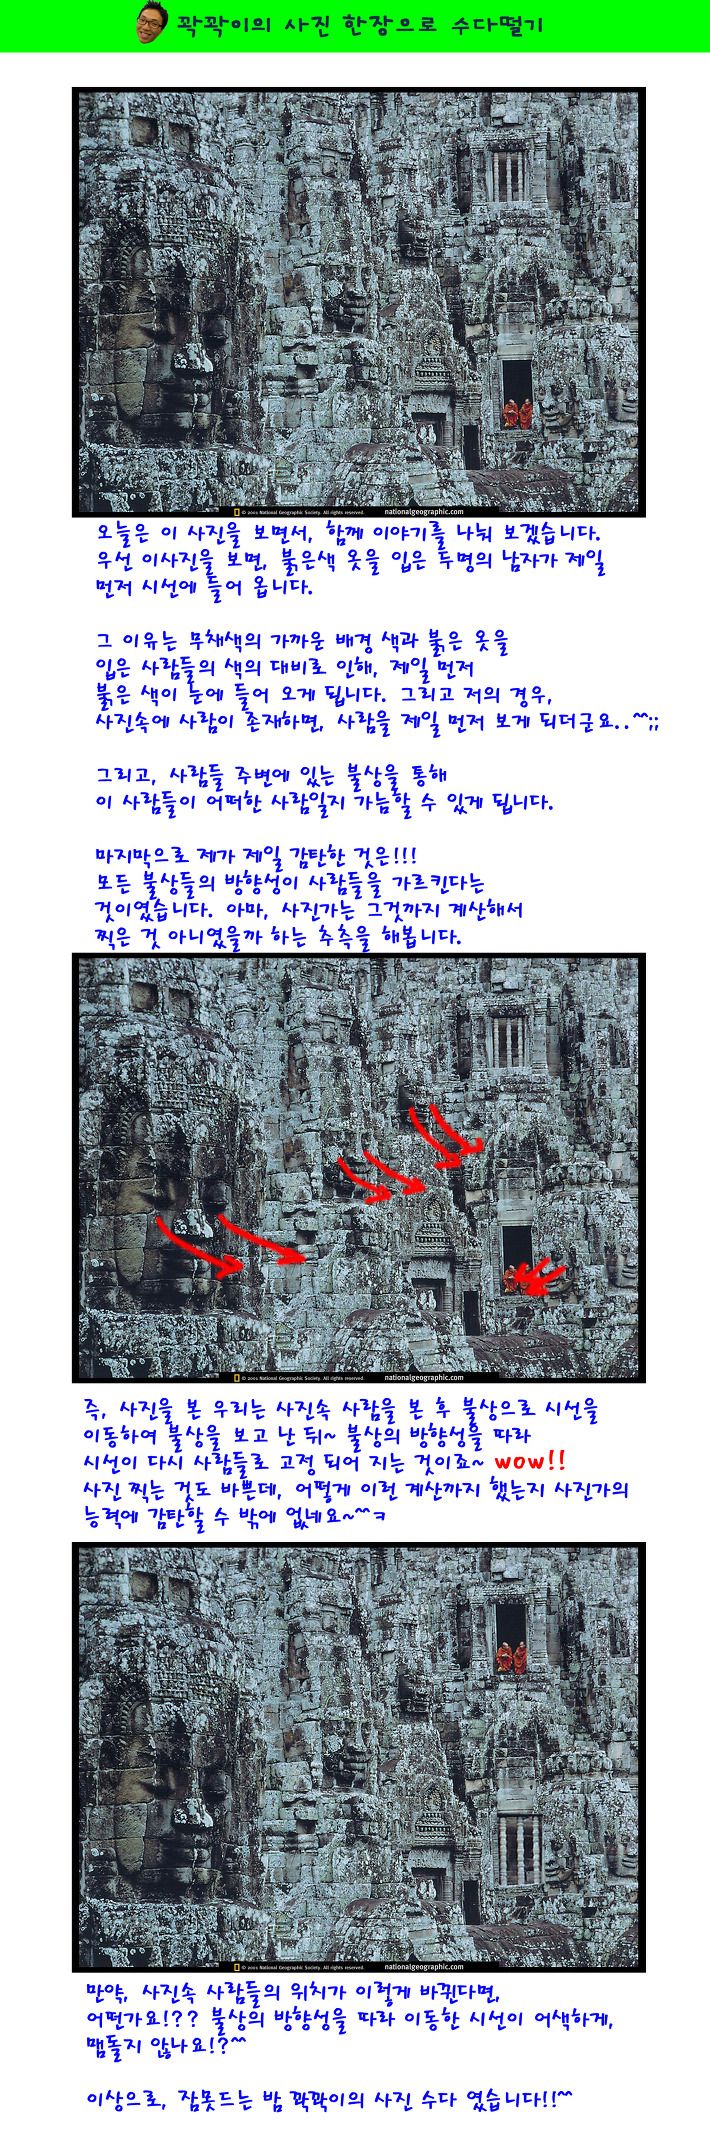 꽉꽉이의 사진 한장으로 수다떨기
© 2001 National Geographic Society. All rights reserved. nationalgeographic.com
오늘은 이 사진을 보면서, 함께 이야기를 나눠 보겠습니다.
우선 이사진을 보면, 붉은색 옷을 입은 두명의 남자가 제일
먼저 시선에 들어 옵니다.
그 이유는 무채색의 가까운 배경 색과 붉은 옷을
입은 사람들의 색의 대비로 인해, 제일 먼저
붉은 색이 눈에 들어 오게 됩니다. 그리고 저의 경우,
사진속에 사람이 존재하면, 사람을 제일 먼저 보게 되더군요..^^;;
그리고, 사람들 주변에 있는 불상을 통해
이 사람들이 어떠한 사람일지 가늠할 수 있게 됩니다.
마지막으로 제가 제일 감탄한 것은!!!
모든 불상들의 방향성이 사람들을 가르킨다는
것이였습니다. 아마, 사진가는 그것까지 계산해서
찍은 것 아니였을까 하는 추측을 해봅니다.
© 2001 National Geographic Society. All rights reserved. nationalgeographic.com
즉, 사진을 본 우리는 사진속 사람을 본 후 불상으로 시선을
이동하여 불상을 보고 난 뒤~ 불상의 방향성을 따라
시선이 다시 사람들로 고정 되어 지는 것이죠~ wow!!
사진 찍는 것도 바쁜데, 어떻게 이런 계산까지 했는지 사진가의
능력에 감탄할 수 밖에 없네요~^^ㅋ
© 2001 National Geographic Society. All rights reserved. nationalgeographic.com
만약, 사진속 사람들의 위치가 이렇게 바뀐다면,
어떤가요!?? 불상의 방향성을 따라 이동한 시선이 어색하게,
맴돌지 않나요!?^^
이상으로, 잠못드는 밤 꽉꽉이의 사진 수다 였습니다!!^^